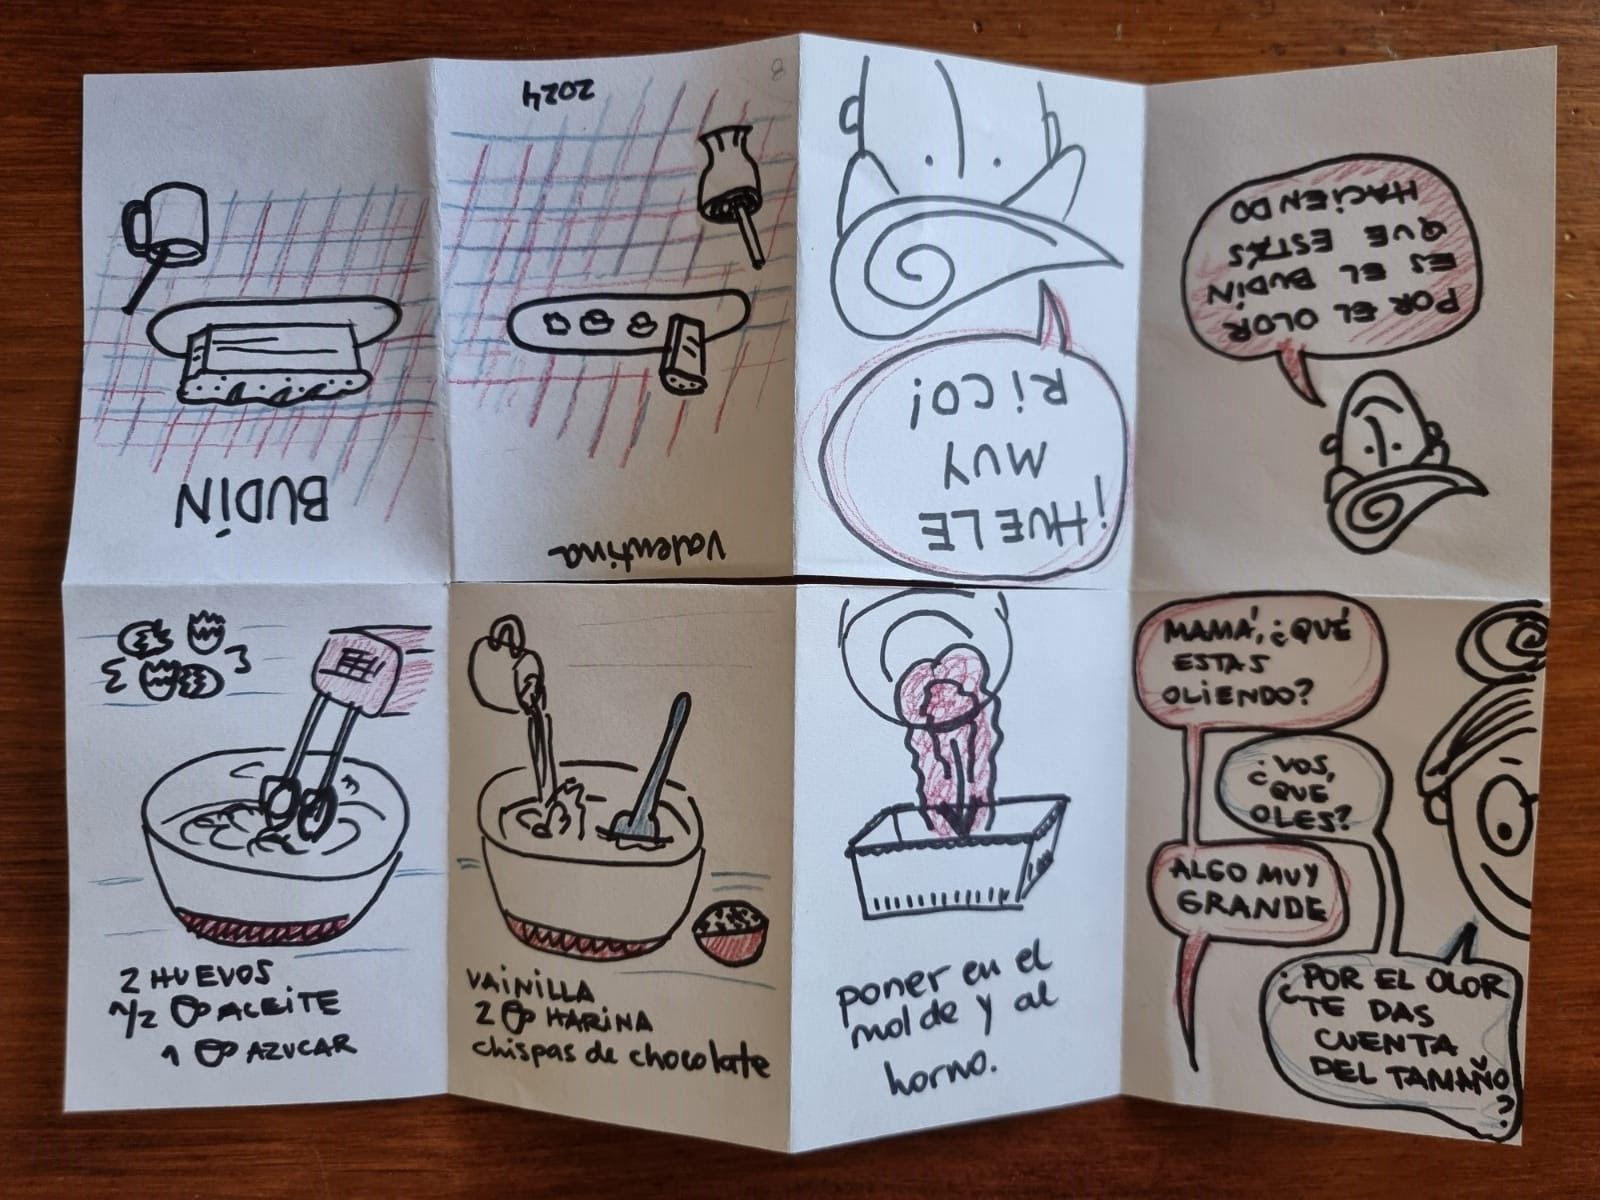 BUDÍN
2 HUEVOS
1/2 ACEITE
1 AZUCAR
VAINILLA
2 HARINA
chispas de chocolate
poner en el
molde y al
horno.
MAMÁ, ¿QUÉ
ESTAS
OLIENDO?
¿VOS,
QUE
OLES?
ALGO MUY
GRANDE
¿POR EL OLOR
TE DAS
CUENTA
DEL TAMAÑO
?
POR EL OLOR
ES EL BUDÍN
QUE ESTÁS
HACIENDO
¡HUELE
MUY
RICO!
Valentina
2024
8